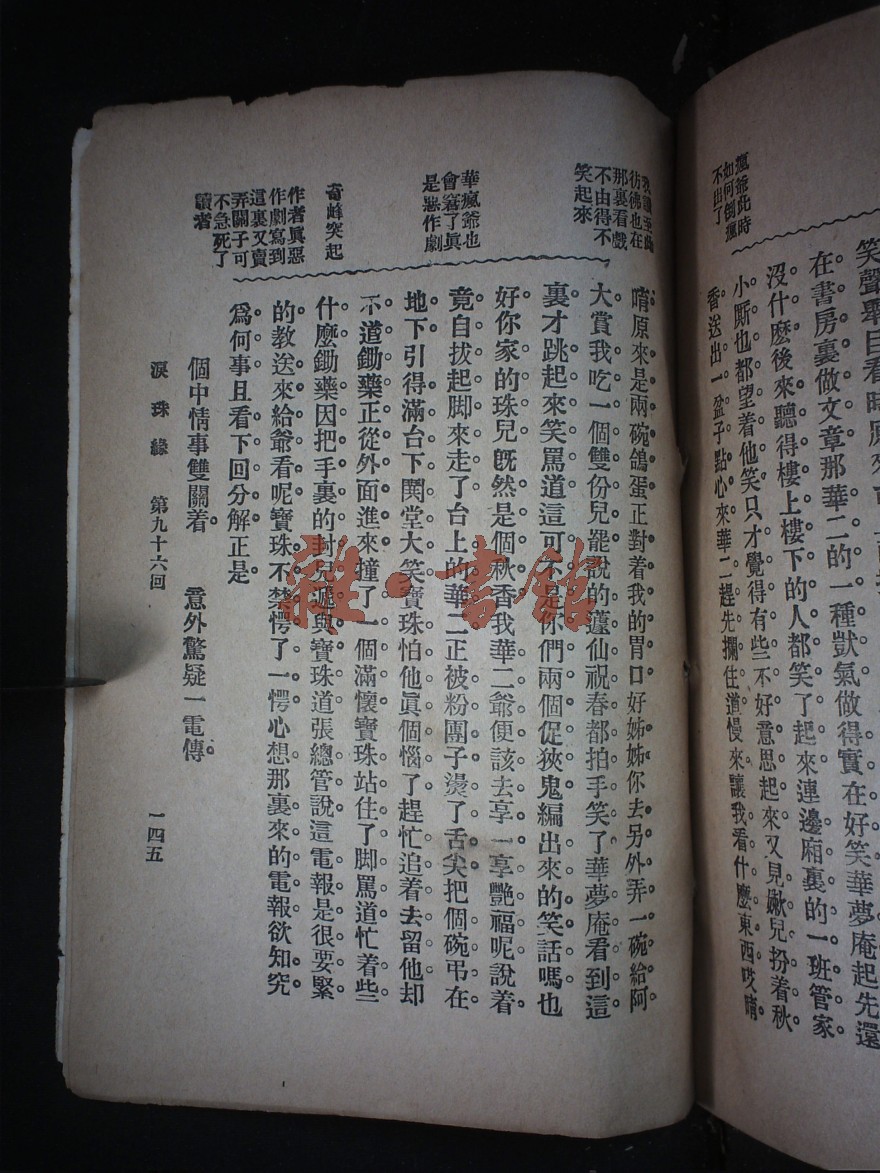 瘋爺此時
如何倒瘋
不出了
在書房裏做文章那華二的一種獃氣做得實在好笑華夢庵起先還
沒什麽後來聽得樓上樓下的人都笑了起來連邊廂裏的一班管家
小厮也都望着他笑只才覺得有些不好意思起來又見嫩兒扮着秋
香送出一盆子點心來華二趕先攔住道慢來讓我看什麽東西哎唷
我讀至此
彷彿也在
那裏看戲
不由得不
笑起來
華瘋爺也
會窘了眞
是惡作劇
奇峰突起
作者眞惡
作劇寫到
這裏又賣
弄關子可
不急死了
讀者
唷原來是兩碗鴿蛋正對着我的胃口好姊姊你去另外弄一碗給阿
大賞我吃一個雙份兒罷說的蘧仙祝春都拍手笑了華夢庵看到這
裏才跳起來笑罵道這可不是你們兩個促狹鬼編出來的笑話嗎也
好你家的珠兒旣然是個秋香我華二爺便該去享一享艷福呢說着
竟自拔起脚來走了台上的華二正被粉團子燙了舌尖把個碗弔在
地下引得滿台下閧堂大笑寶珠怕他眞個惱了趕忙追着去留他却
不道鋤藥正從外面進來撞了一個滿懷寶珠站住了脚罵道忙着些
什麽鋤藥因把手裏的封兒遞與寶珠道張總管說這電報是很要緊
的教送來給爺看呢寶珠不禁愕了一愕心想那裏來的電報欲知究
爲何事且看下回分解正是
個中情事雙關着 意外驚疑一電傳。
淚珠緣 第九十六回 一四五
雜·書館